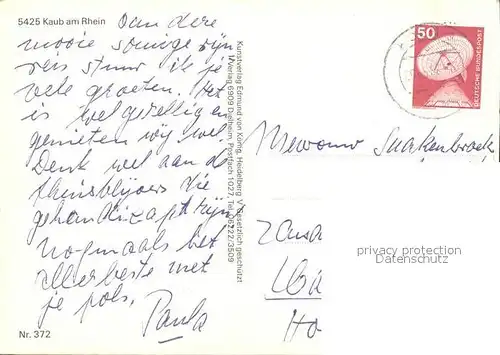 5425 Kaub am Rhein
Van deze
mooie zonnige rijn
reis stuur ik je
vele groeten. Het
is wel gezellig en
genieten wij wel.
Denk wel aan de
thuisblijvers die
gehandicapt zijn
Nogmaals het
allerbeste met
je pols.
Paula
Nr. 372
Kunstverlag Edmund von König, Heidelberg
Verlag 6909 Dielheim, Postfach 1027, Tel. 06222/3509
gesetzlich geschützt
50
DEUTSCHE BUNDESPOST
Mevrouw
privacy protection
Datenschutz